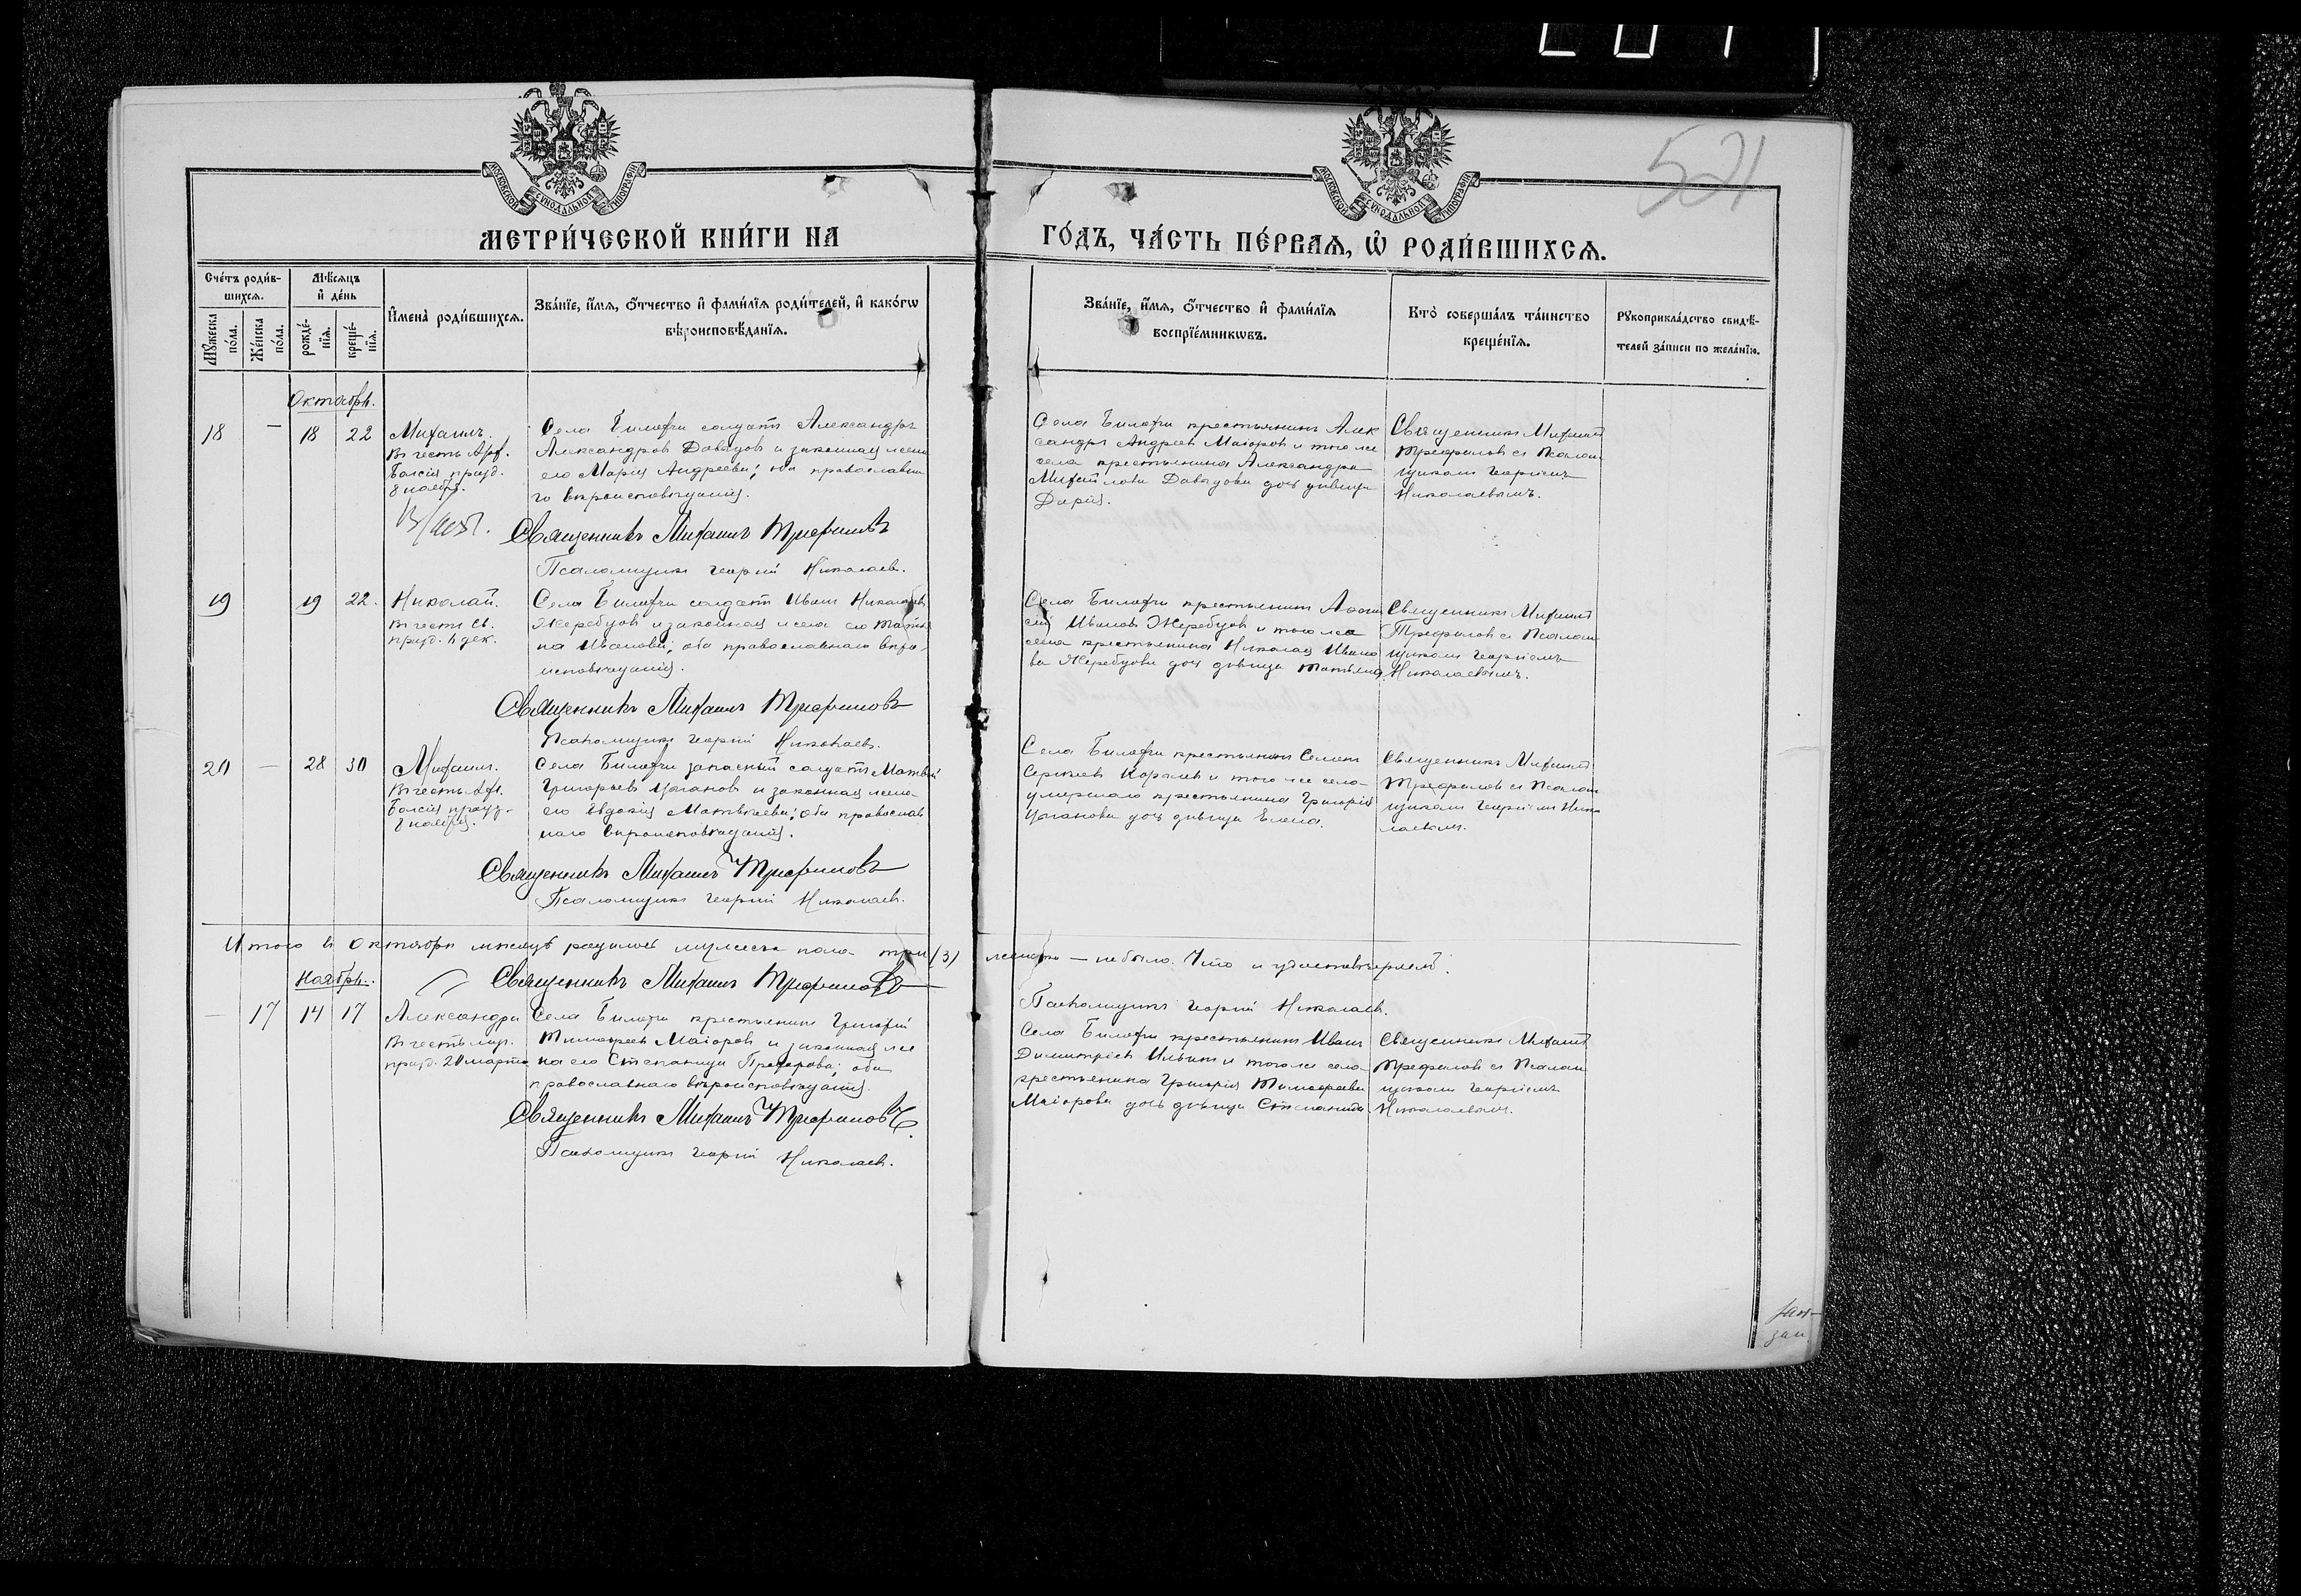 521
МОСКОВСКОЙ СѴНОДАЛЬНОЙ ТИПОГРАФІИ
МОСКОВСКОЙ СѴНОДАЛЬНОЙ ТИПОГРАФІИ
МЕТРИ́ЧЕСКОЙ КНИ́ГИ НА
ГО́ДЪ, ЧА́СТЬ ПЕ́РВАѦ, Ѡ҆ РОДИ́ВШИХСѦ.
Сче́тъ роди́в-
шихсѧ.
Мѣ́сѧцъ
и҆ де́нь
Мꙋ́жеска
по́ла.
Же́нска
по́ла.
рожде́-
нїѧ.
креще́-
нїѧ.
И҆мена̀ роди́вшихсѧ.
Зва́нїе, и҆́мѧ, ѻ҆́тчество и҆ фами́лїѧ роди́телей, и҆ како́гѡ
вѣроисповѣ́данїѧ.
Зва́нїе, и҆́мѧ, ѻ҆́тчество и҆ фами́лїѧ
воспрїе́мникѡвъ.
Кто̀ соверша́лъ та́инство
креще́нїѧ.
Рꙋкоприкла́дство свидѣ́-
телей за́писи по жела́нїю.
Октябрь.
18 — 18 22
Михаилъ.
Въ честь Арх.
Божія празд.
8 ноября.
Села Билярки солдатъ Александръ
Александровъ Давыдовъ и законная жена
его Марія Андреева; оба православна
го вѣроисповѣданія.
Священникъ Михаилъ Трифоновъ
Псаломщикъ Георгій Николаевъ.
Села крестьянинъ Алек
сандръ Андреевъ Маіоровъ и того же
села крестьянина Александра
Михайлова Давыдова дочь дѣвица
Дарія.
Священникъ Михаилъ
Трифоновъ съ Псалом
щикомъ Георгіемъ
Николаевымъ.
19 19 22.
Николай.
Въ честь св.
празд. 6 дек.
Села солдатъ Иванъ Николаевъ
Жеребцовъ и законная жена его Татья
на Иванова; оба православнаго вѣро
исповѣданія.
Священникъ Михаилъ Трифоновъ
Псаломщикъ Георгій Николаевъ.
Села крестьянинъ
Ивановъ Жеребцовъ и того же
села крестьянина Николая Ивано
ва Жеребцова дочь дѣвица Татьяна.
Священникъ Михаилъ
Трифоновъ съ Псалом
щикомъ Георгіемъ
Николаевымъ.
20 — 28 30
Михаилъ.
Въ честь Арх.
Божія празд.
8 ноября.
Села запасный солдатъ Матвѣй
Григорьевъ Цыгановъ и законная жена
его Евдокія Матвѣева; оба православ
наго вѣроисповѣданія.
Священникъ Михаилъ Трифоновъ
Псаломщикъ Георгій Николаевъ.
Села крестьянинъ Семенъ
Сергѣевъ и того же села
умершаго крестьянина Григорія
Цыганова дочь дѣвица Елена.
Священникъ Михаилъ
Трифоновъ съ Псалом
щикомъ Георгіемъ Нико
лаевымъ.
Итого въ Октябрѣ мѣсяцѣ родилось мужеска пола три (3) женска — не было. Что и удостовѣряемъ.
Священникъ Михаилъ Трифоновъ
Псаломщикъ Георгій Николаевъ.
Ноябрь.
— 17 14 17
Александра
Въ честь мр.
празд. 20 марта
Села крестьянинъ Григорій
Тимофеевъ Маіоровъ и законная же
на его Степанида оба
православнаго вѣроисповѣданія.
Священникъ Михаилъ Трифоновъ
Псаломщикъ Георгій Николаевъ.
Села крестьянинъ Иванъ
Димитріевъ Ильинъ и того же села
крестьянина Григорія Тимофеева
Маіорова дочь дѣвица Степанида.
Священникъ Михаилъ
Трифоновъ съ Псалом
щикомъ Георгіемъ
Николаевымъ.